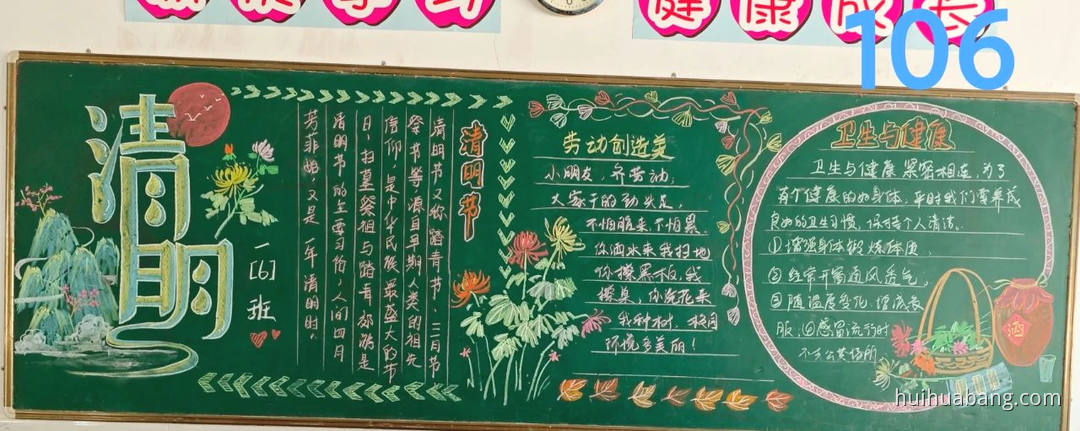 健康成长
106
清明
一[6]班
清明节
清明节又称踏青节、三月节
祭祖节等,源自早期人类的祖先
信仰,是中华民族最盛大的节
日,扫墓祭祖与踏青郊游是
清明节的主要习俗,人间四月
芳菲始,又是一年清明时。
劳动创造美
小朋友,齐劳动,
大家干的劲头足,
不怕脏来不怕累,
你洒水来我扫地
你擦黑板,我
擦桌,你浇花来
我种树,校园
环境多美丽!
卫生与健康
卫生与健康紧密相连,为了
有个健康的好身体,平时我们需养成
良好的卫生习惯,保持个人清洁。
①增强身体锻炼体质,
②经常开窗通风透气,
③随温度变化,增减衣
服,④感冒流行时
不去公共场所
酒
huihuabang.com